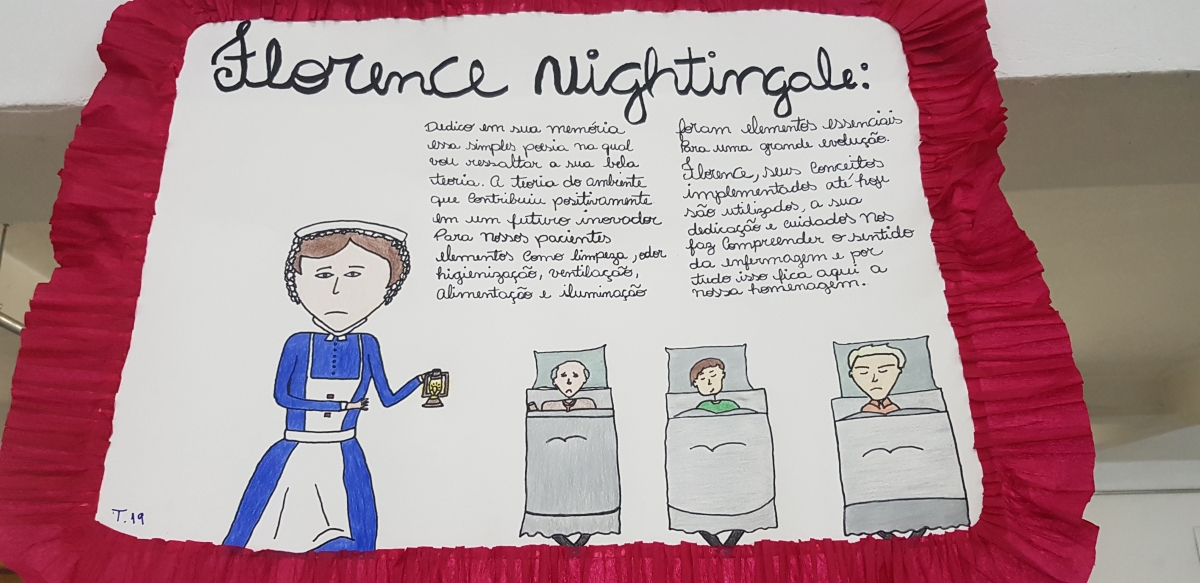 Florence Nightingale:
Dedico em sua memória
essa simples poesia na qual
vou ressaltar a sua bela
teoria. A teoria do ambiente
que contribuiu positivamente
em um futuro inovador
Para nossos pacientes
elementos como limpeza, odor
higienização, ventilação,
alimentação e iluminação
foram elementos essenciais
Para uma grande evolução.
Florence, seus conceitos
implementados até hoje
são utilizados, a sua
dedicação e cuidados nos
faz compreender o sentido
da enfermagem e por
tudo isso fica aqui a
nossa homenagem.
T.19